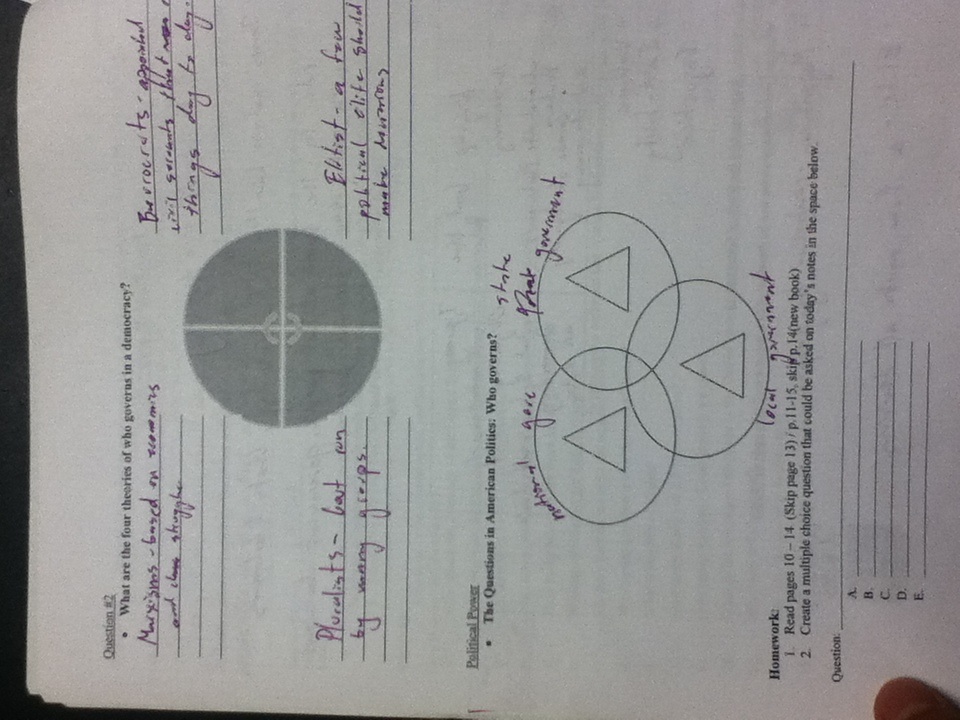 Question #2
• What are the four theories of who governs in a democracy?
Marxisms - based on economics
and class struggle
Beurocrats - appointed
civil servants that
things day to day.
Pluralists - but run
by many groups.
Elitist - a few
political elite should
make decisions
Political Power
• The Questions in American Politics: Who governs?
national gove
state
government
local government
Homework:
1. Read pages 10 – 14 (Skip page 13) / p.11-15, skip p.14(new book)
2. Create a multiple choice question that could be asked on today's notes in the space below.
Question:
A.
B.
C.
D.
E.